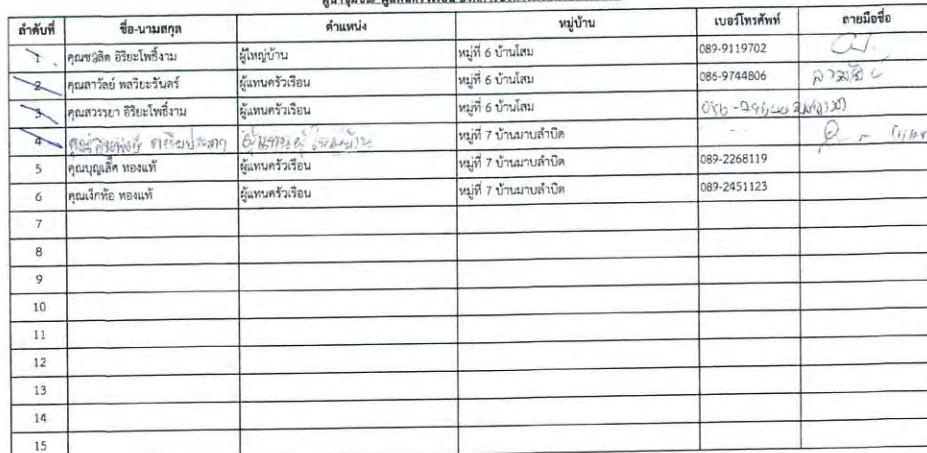 ลำดับที่ ชื่อ-นามสกุล ตำแหน่ง หมู่บ้าน เบอร์โทรศัพท์ ลายมือชื่อ
1 คุณชวลิต อิริยะโพธิ์งาม ผู้ใหญ่บ้าน หมู่ที่ 6 บ้านโสม 089-9119702
2 คุณลาวัลย์ พลวิยะรันดร์ ผู้แทนครัวเรือน หมู่ที่ 6 บ้านโสม 086-9744806
3 คุณสวรรยา อิริยะโพธิ์งาม ผู้แทนครัวเรือน หมู่ที่ 6 บ้านโสม
4 หมู่ที่ 7 บ้านมาบลำบิด
5 คุณบุญเลิศ ทองแท้ ผู้แทนครัวเรือน หมู่ที่ 7 บ้านมาบลำบิด 089-2268119
6 คุณเง็กท้อ ทองแท้ ผู้แทนครัวเรือน หมู่ที่ 7 บ้านมาบลำบิด 089-2451123
7
8
9
10
11
12
13
14
15